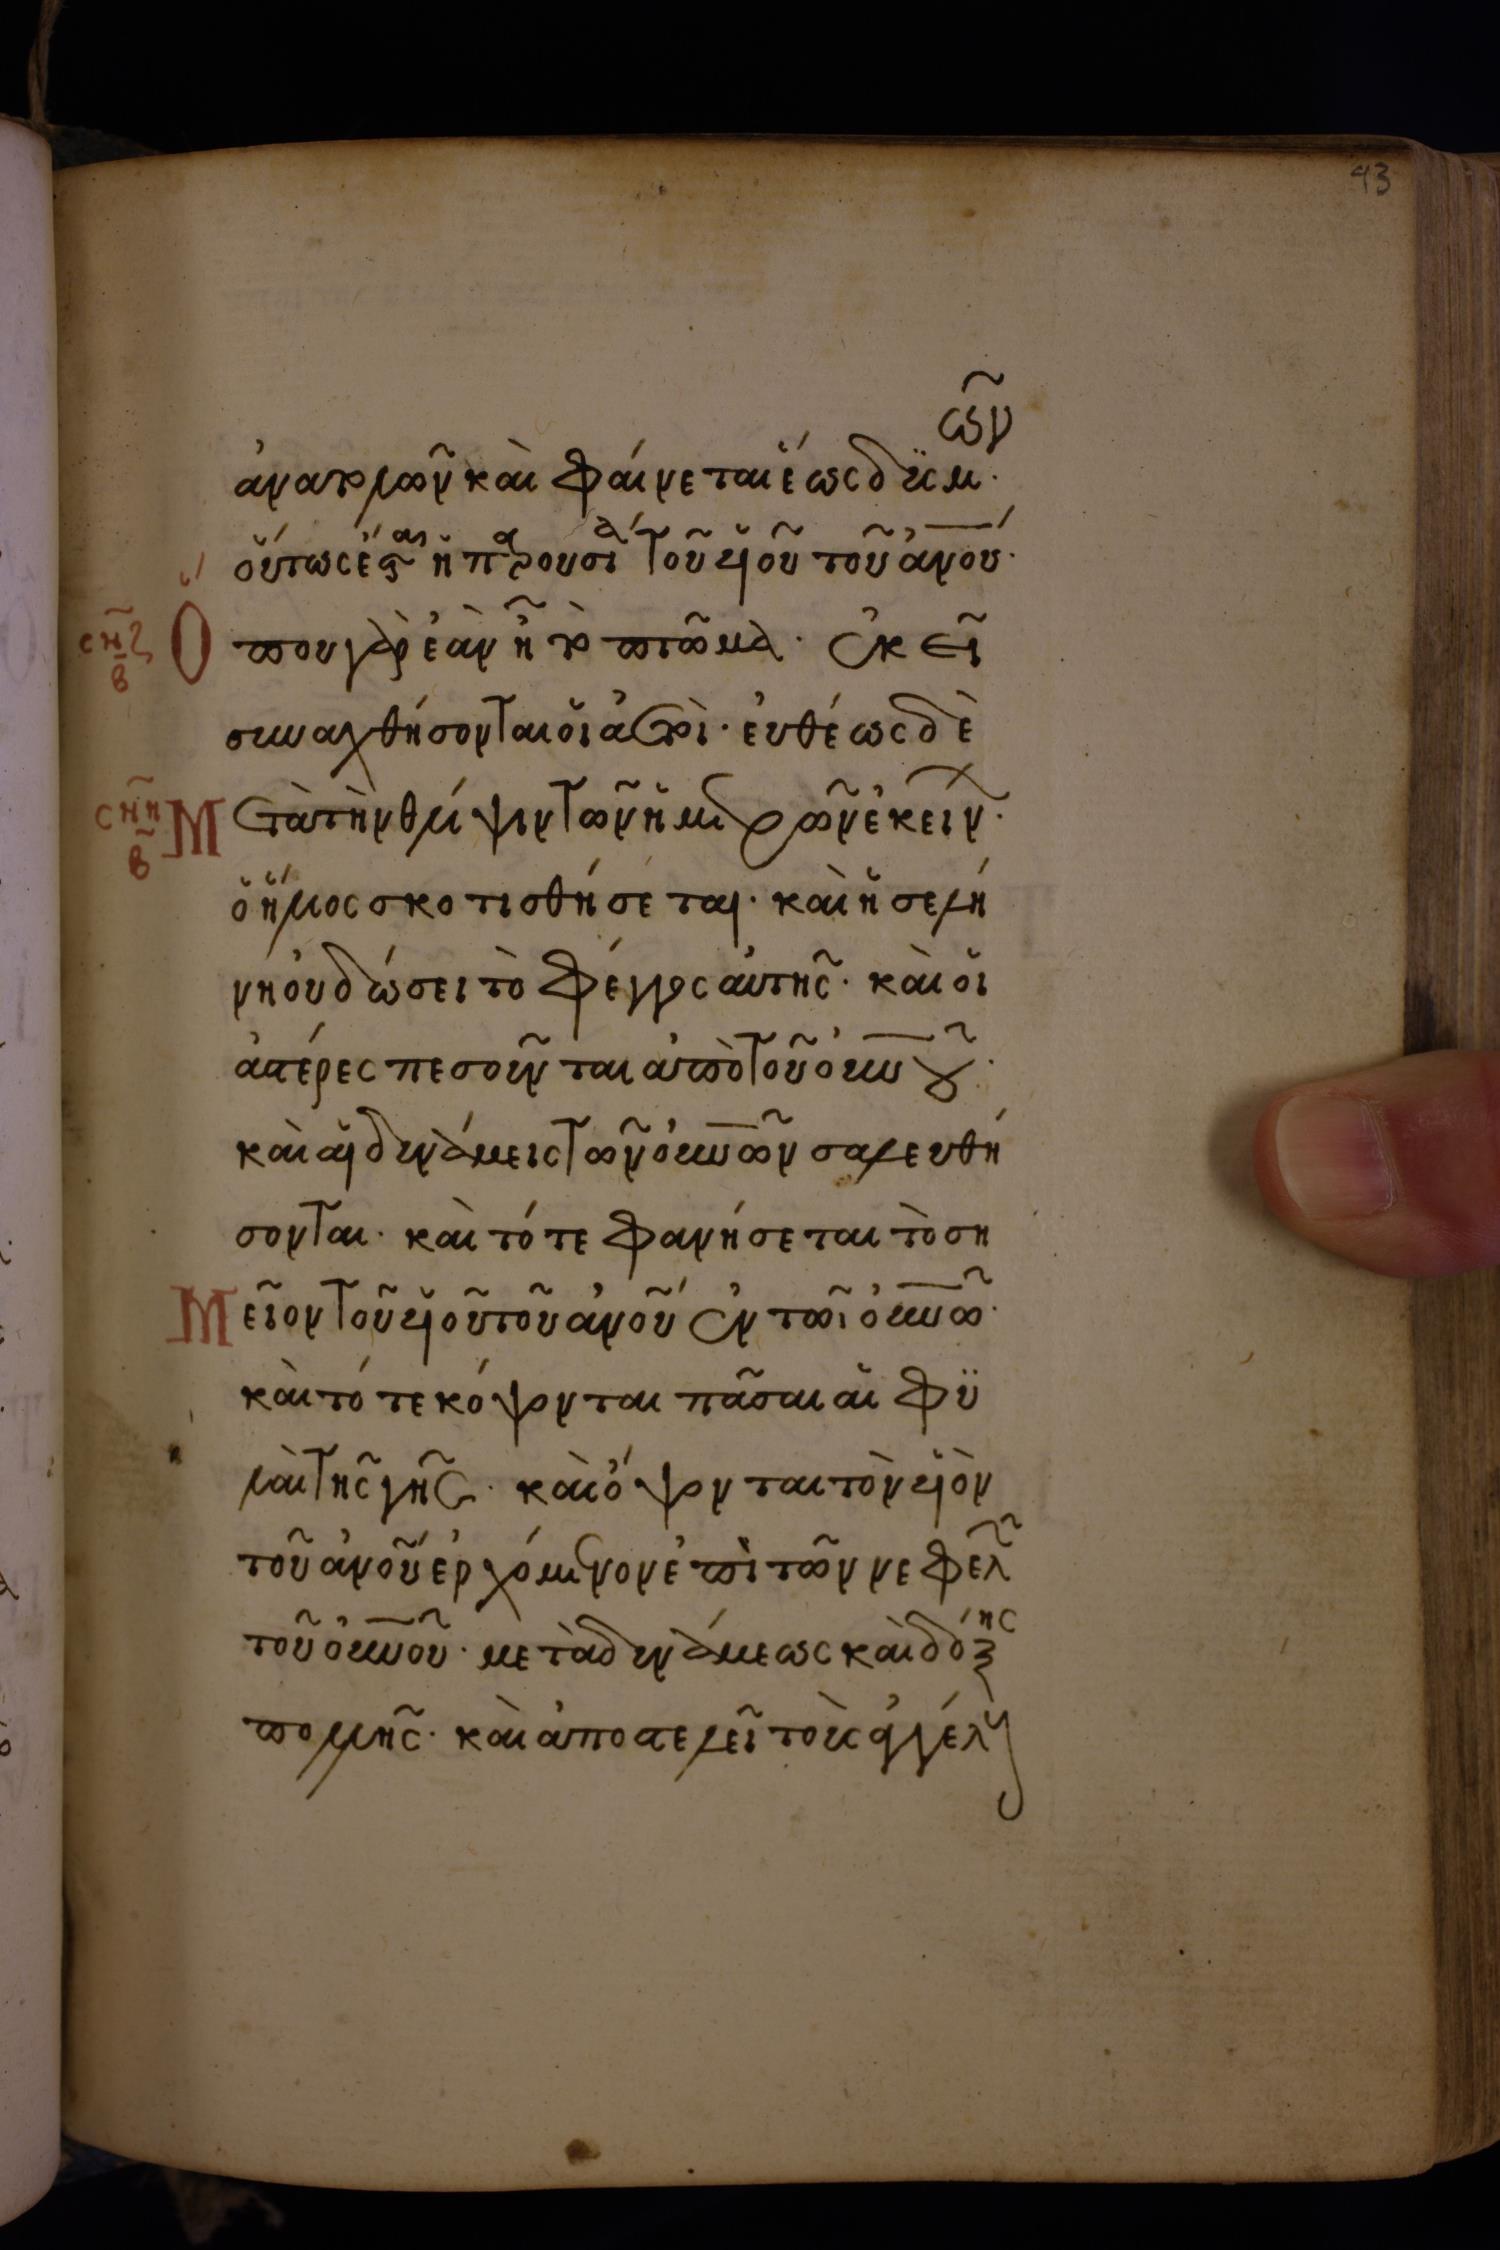 93
ἀνατολῶν καὶ φαίνεται ἕως δϋσμῶν·
οὕτως ἔσται ἡ παρουσία τοῦ υἱοῦ τοῦ ἀνου·
σνζ β Ὅπου γὰρ ἐὰν ἦ τὸ πτῶμα· ἐκεῖ
συναχθήσονται οἱ ἀετοὶ· ἐυθέως δὲ
σνη β Μετὰ τὴν θλίψιν τῶν ἡμερῶν ἐκείνων·
ὁ ἥλιος σκοτισθήσεται· καὶ ἡ σελή
νη ὀυ δώσει τὸ φέγγος αὐτῆς· καὶ οἱ
ἀστέρες πεσοῦνται ἀπὸ τοῦ ὀυνοῦ·
καὶ αἱ δυνάμεις τῶν ὀυνῶν σαλευθή
σονται· καὶ τότε φανήσεται τὸ ση
Μεῖον τοῦ υἱοῦ τοῦ ἀνοῦ ἐν τῶι ὀυνῶ·
καὶ τότε κόψονται πᾶσαι αἱ φϋ
λαὶ τῆς γῆς· καὶ ὄψονται τὸν υἱὸν
τοῦ ἀνοῦ ἐρχόμενον ἐπὶ τῶν νεφελῶν
τοῦ ὀυνοῦ· μετὰ δυνάμεως καὶ δόξης
πολλῆς· καὶ ἀποστελεῖ τοὺς ἀγγέλους